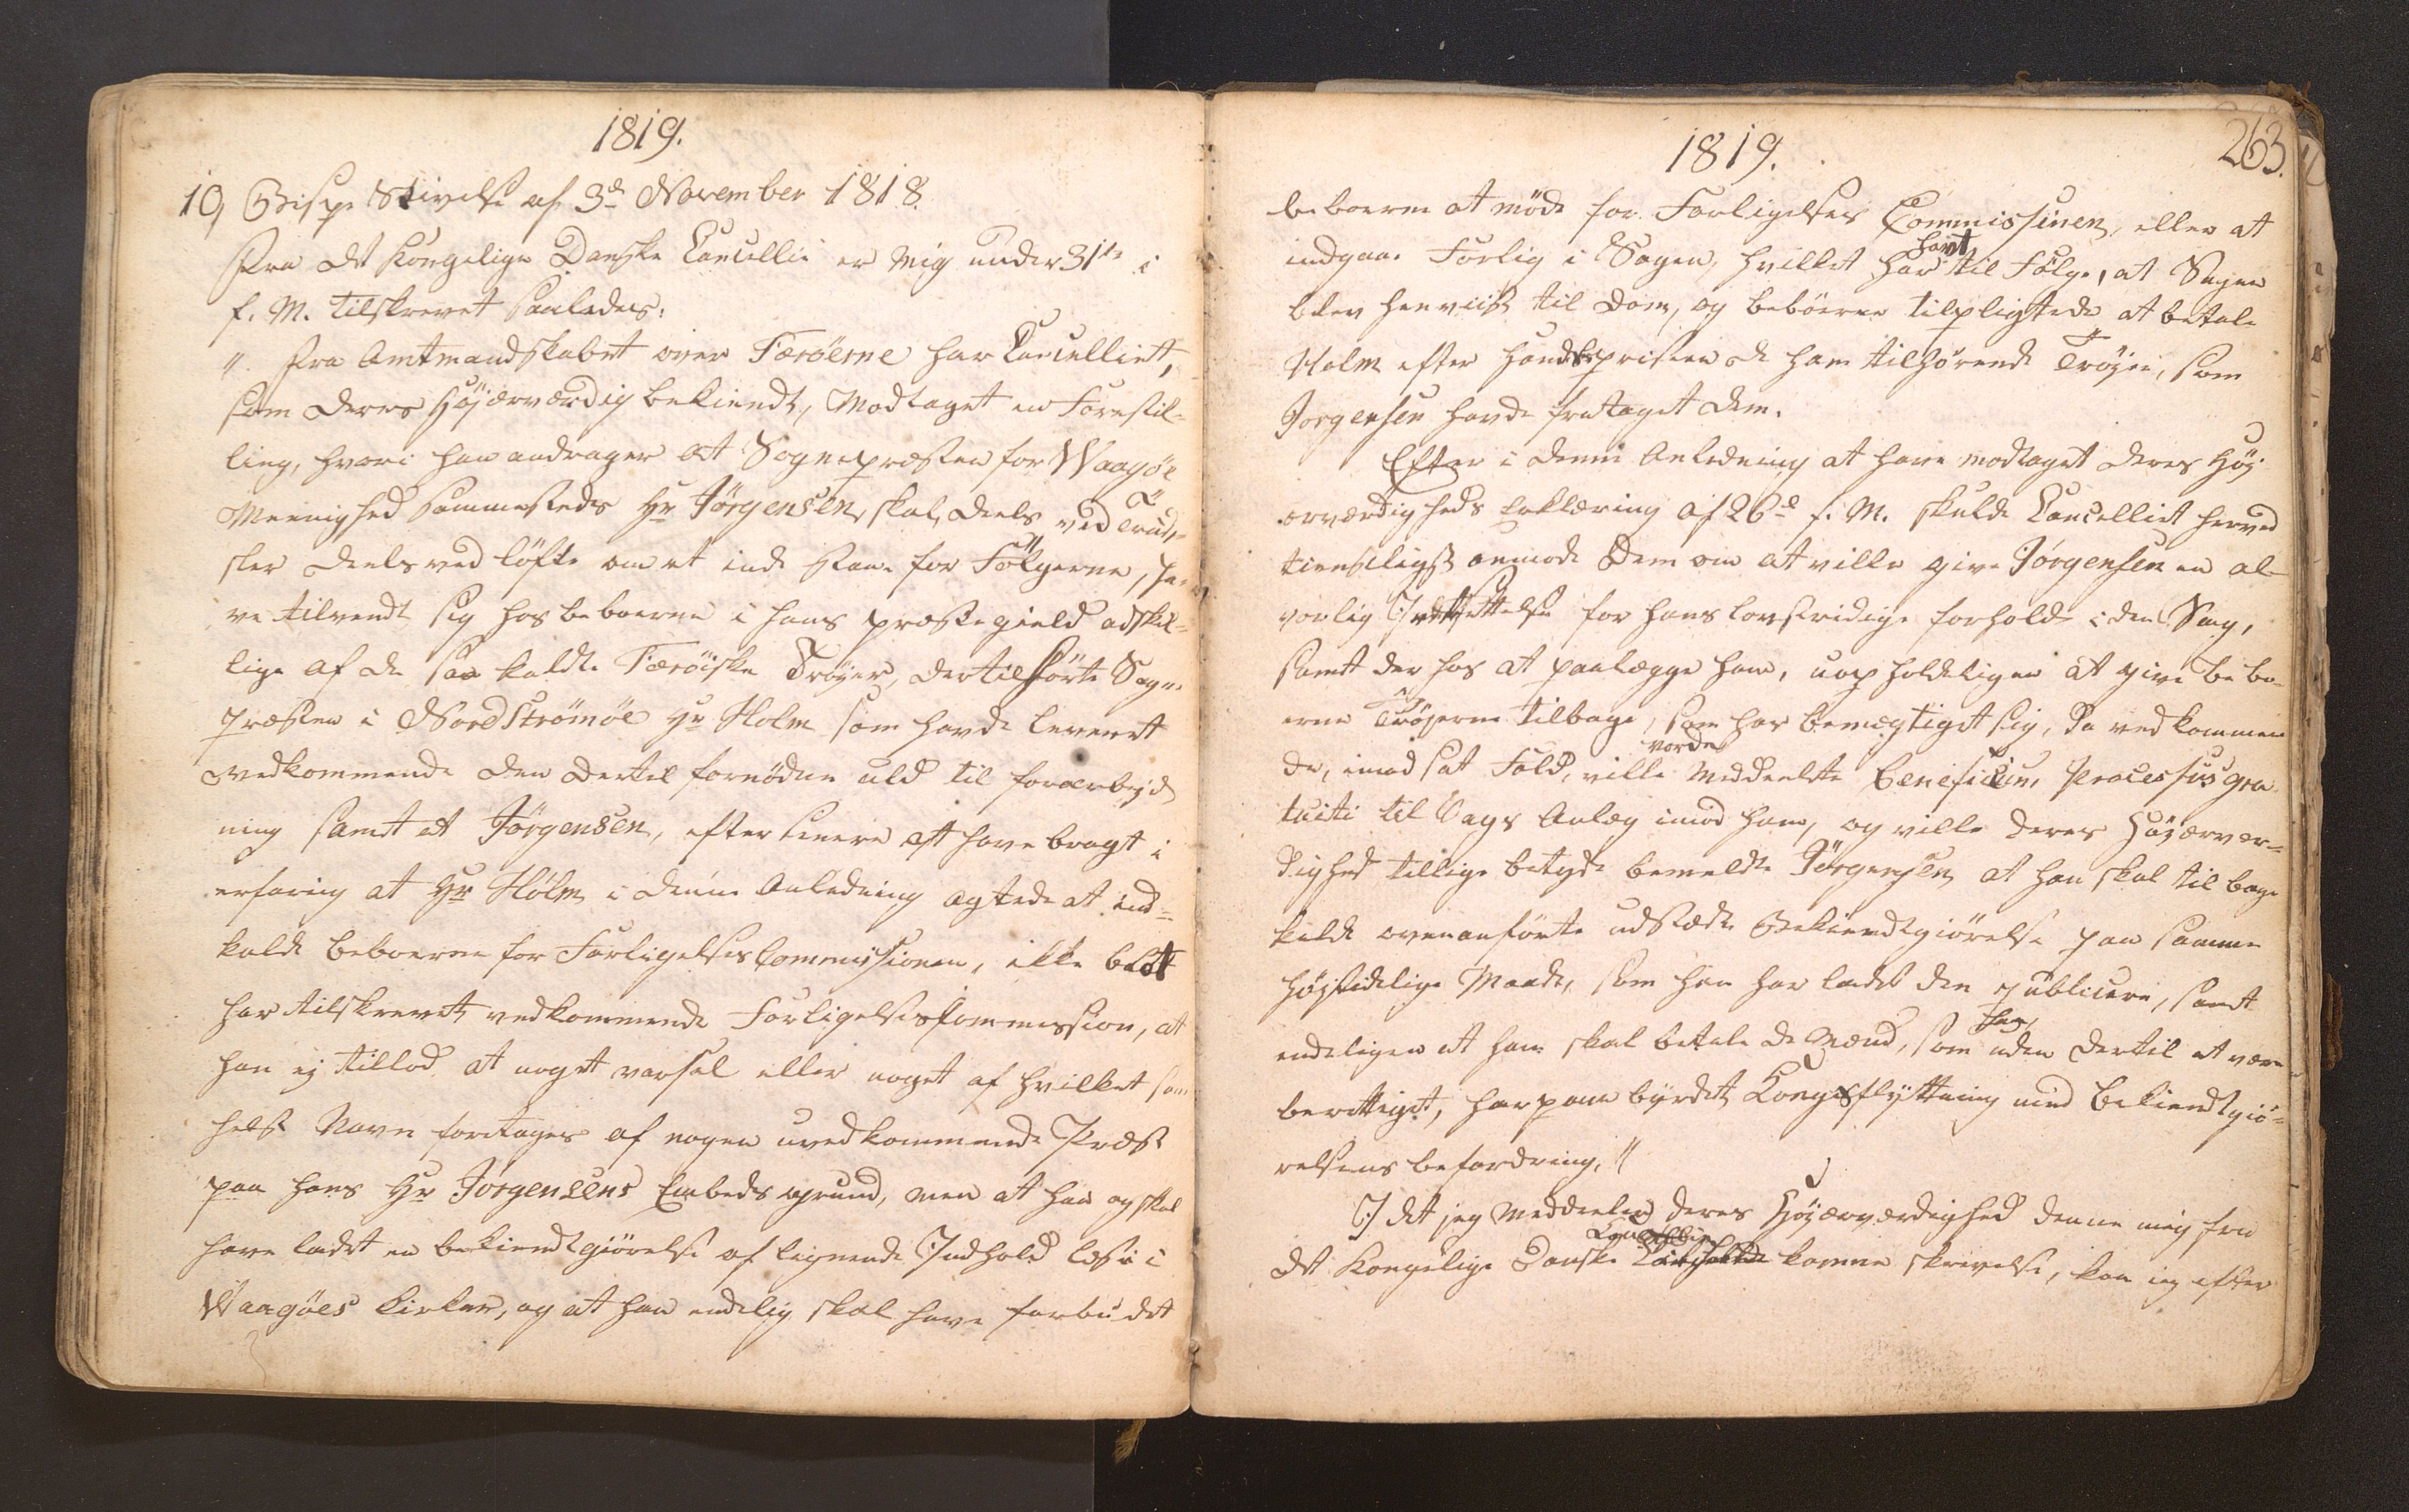 1819.
10, Bisp. Skrivelse af 3d November 1818.
Fra det Kongelige Danske Cancellie er mig under 31te i
f. M. tilskrevet saaledes:
"Fra Amtmandskabet over Færöerne har Cancelliet,
som Deres Höjærværdig bekiendt, modtaget en Forestil-
ling, hvori han andrager at Sognepræsten for Waagöe
Meenighed sammesteds Hr Jörgensen, skal, deels ved Trud-
sler deels ved löfte om at inde staae for Fölgerne, ha-
ve tilvendt sig hos beboerne i hans præstegield adskil-
lige af de saa kaldte Færöiske Tröjer, der tilhörte Sogne
præsten i Nordströmöe Hr Holm som havde leveret
vedkommende den dertil fornödne uld til forarbejd
ning samt at Jörgensen, efter senere at have bragt i
erfaring at Hr Holm i denne Anledning agtede at ind-
kalde beboerne for Forligelses Commissionen, ikke blot
har tilskrevet vedkommende Forligelsescommission, at
han ej tillod at noget varsel eller noget af hvilket som
helst Navn foretages af nogen uvedkommende Præst
paa hans Hr Jörgensens Embeds grund, men at han og skal
have ladet en bekiendtgiörelse af lignende Indhold læse i
Waagöes Kirker, og at han endelig skal have forbudet
263.
1819.
beboerne at möde for Forligelses Commissinen, eller at
indgaae Forlig i Sagen, hvilket har havt til Fölge, at Sagen
blev henviist til Dom, og beböerne tilpligtede at betale
Holm efter handelsprisen de ham tilhörende Tröjer, som
Jorgensen havde frataget dem.
Efter i denne Anledning at have modtaget Deres Höj
ærværdigheds Erklæring af 26d f. M. skulde Cancelliet herved
tienstligst anmode Dem om at ville give Jörgensen en al-
vorlig Irettesættelse for hans lovstridige forhold i den Sag,
samt der hos at paalægge ham, uopholdeligen at give bebo-
erne Tröjerne tilbage, som har bemægtiget sig, da vedkommen
de, imod sat Fald, ville vorde meddeelte beneficium processus gra
tuiti til Sags Anlæg imod ham, og ville Deres Höjærvær-
dighed tillige betyde bemeldte Jörgensen, at han skal tilbage
kalde ovenanförte udstædte Bekiendtgiörelse paa samme
höjtidelige Maade, som han har ladet den publicere, samt
endeligen at han skal betale de Mænd, som han uden dertil at være
berettiget, har paabyrdet Kongsflyttning med bekiendtgiö-
relsens befordring."
I det jeg meddeeler Deres Höjærværdighed denne mig fra
det Kongelige Danske Cancellie komne skrivelse, kan jeg efter